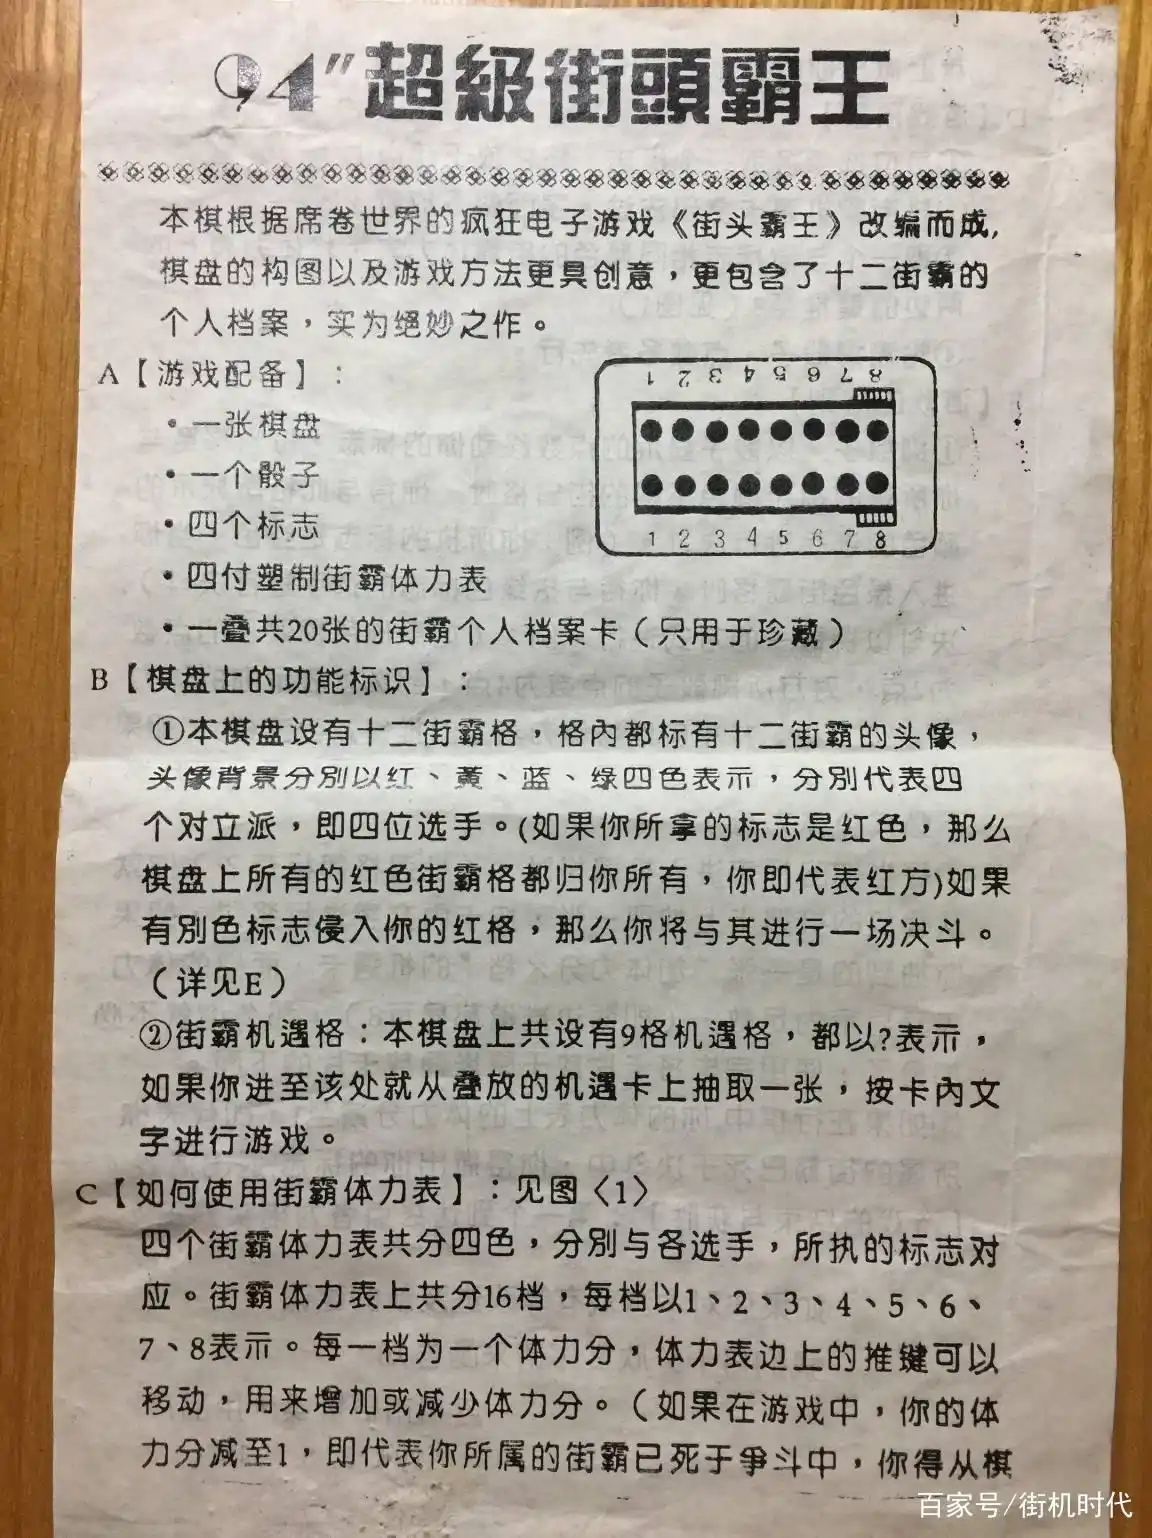 94"超級街頭霸王
本棋根据席卷世界的疯狂电子游戏《街头霸王》改编而成,
棋盘的构图以及游戏方法更具创意，更包含了十二街霸的
个人档案，实为绝妙之作。
A【游戏配备】：
•一张棋盘
•一个骰子
•四个标志
•四付塑制街霸体力表
•一叠共20张的街霸个人档案卡（只用于珍藏）
1 2 3 4 5 6 7 8
1 2 3 4 5 6 7 8
B【棋盘上的功能标识】：
①本棋盘设有十二街霸格，格內都标有十二街霸的头像，
头像背景分別以红、黄、蓝、绿四色表示，分別代表四
个对立派，即四位选手。(如果你所拿的标志是红色，那么
棋盘上所有的红色街霸格都归你所有，你即代表红方)如果
有別色标志侵入你的红格，那么你将与其进行一场决斗。
（详见E）
②街霸机遇格：本棋盘上共设有9格机遇格，都以?表示，
如果你进至该处就从叠放的机遇卡上抽取一张，按卡內文
字进行游戏。
C【如何使用街霸体力表】：见图〈1〉
四个街霸体力表共分四色，分別与各选手，所执的标志对
应。街霸体力表上共分16档，每档以1、2、3、4、5、6、
7、8表示。每一档为一个体力分，体力表边上的推键可以
移动，用来增加或减少体力分。（如果在游戏中，你的体
力分减至1，即代表你所属的街霸已死于爭斗中，你得从棋
百家号/街机时代